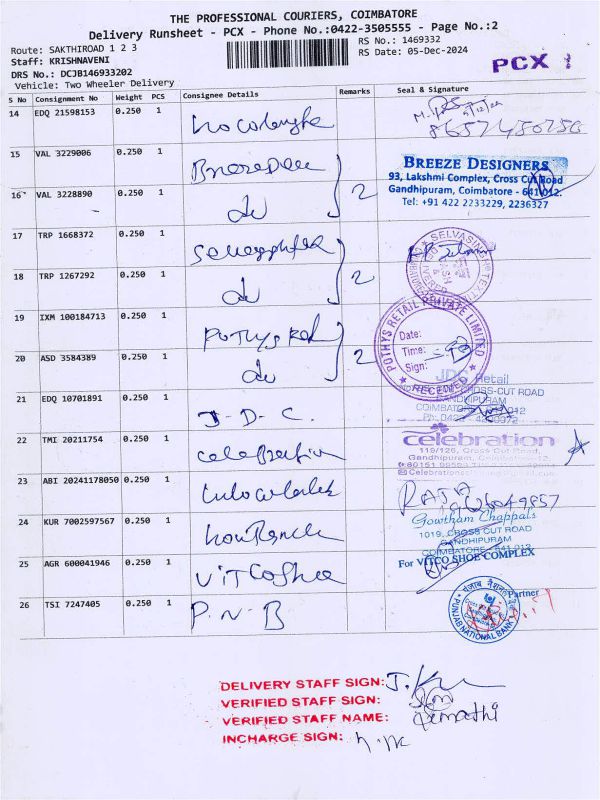 THE PROFESSIONAL COURIERS, COIMBATORE
Delivery Runsheet - PCX - Phone No.:0422-3505555 - Page No.:2
Route: SAKTHIROAD 1 2 3
RS No.: 1469332
Staff: KRISHNAVENI
RS Date: 05-Dec-2024
DRS No.: DCJB146933202
PCX 1
Vehicle: Two Wheeler Delivery
S No Consignment No Weight PCS Consignee Details Remarks Seal & Signature
14 EDQ 21598153 0.250 1
15 VAL 3229006 0.250 1
BREEZE DESIGNERS
93, Lakshmi Complex, Cross Cut Road
Gandhipuram, Coimbatore - 641 012.
Tel: +91 422 2233229, 2236327
16 VAL 3228890 0.250 1 do 2
17 TRP 1668372 0.250 1
18 TRP 1267292 0.250 1 do 2
19 IXM 100184713 0.250 1 Pothys
POTHYS RETAIL PRIVATE LIMITED
Date:
Time:
Sign:
RECEIVED
20 ASD 3584389 0.250 1 do 2
JDC Retail
CROSS-CUT ROAD
GANDHIPURAM
21 EDQ 10701891 0.250 1 J.D.C.
22 TMI 20211754 0.250 1 celebration
celebration
119/126, Cross Cut Road,
Gandhipuram, Coimbatore-12.
23 ABI 20241178050 0.250 1
RAJA
24 KUR 7002597567 0.250 1
Gowtham Chappals
1019, CROSS CUT ROAD
GANDHIPURAM
COIMBATORE - 641 012
25 AGR 600041946 0.250 1
For VITCO SHOE COMPLEX
Partner
26 TSI 7247405 0.250 1 P.N.B
पंजाब नैशनल बैंक
PUNJAB NATIONAL BANK
DELIVERY STAFF SIGN:
VERIFIED STAFF SIGN:
VERIFIED STAFF NAME:
INCHARGE SIGN: